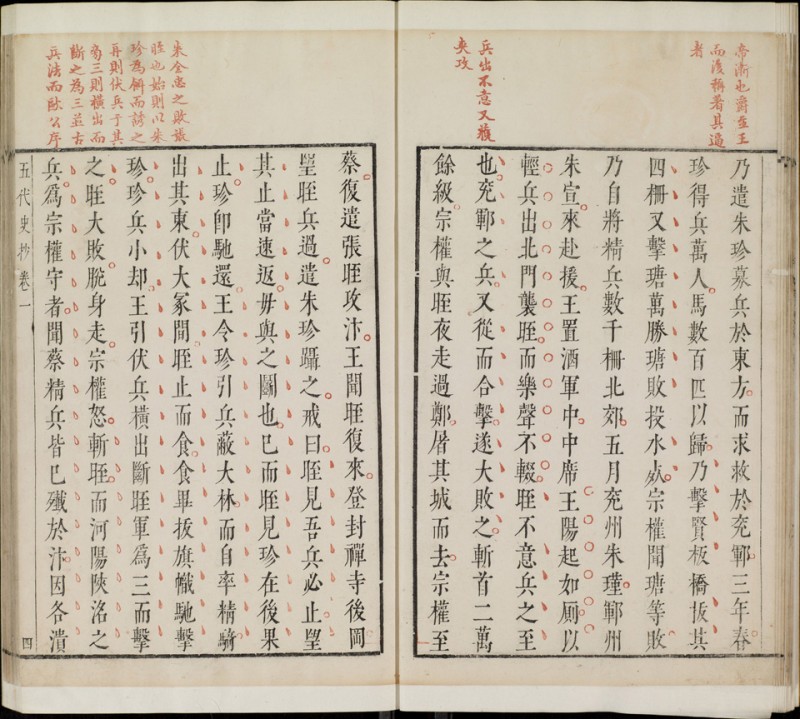 帝漸也爵至王
而後稱著其逼
者
兵出不意又襲
夾攻
乃遣朱珍募兵於東方而求救於兖鄆三年春
珍得兵萬人馬數百匹以歸乃擊賢板橋拔其
四柵又擊瑭萬勝瑭敗投水死宗權聞瑭等敗
乃自將精兵數千柵北郊五月兖州朱瑾鄆州
朱宣來赴援王置酒軍中中席王陽起如厠以
輕兵出北門襲晊而樂聲不輟晊不意兵之至
也兖鄆之兵又從而合擊遂大敗之斬首二萬
餘級宗權與晊夜走過鄭屠其城而去宗權至
朱全忠之敗張
晊也始則以朱
珍為餌而誘之
再則伏兵于其
旁三則橫出而
斷之為三並古
兵法而歐公序
蔡復遣張晊攻汴王聞晊復來登封禪寺後岡
望晊兵過遣朱珍躡之戒曰晊見吾兵必止望
其止當速返毋與之鬭也已而晊見珍在後果
止珍卽馳還王令珍引兵蔽大林而自率精騎
出其東伏大冢間晊止而食食畢拔旗幟馳擊
珍珍兵小却王引伏兵橫出斷晊軍爲三而擊
之晊大敗脫身走宗權怒斬晊而河陽陝洛之
兵爲宗權守者聞蔡精兵皆已殲於汴因各潰
五代史抄卷一
四